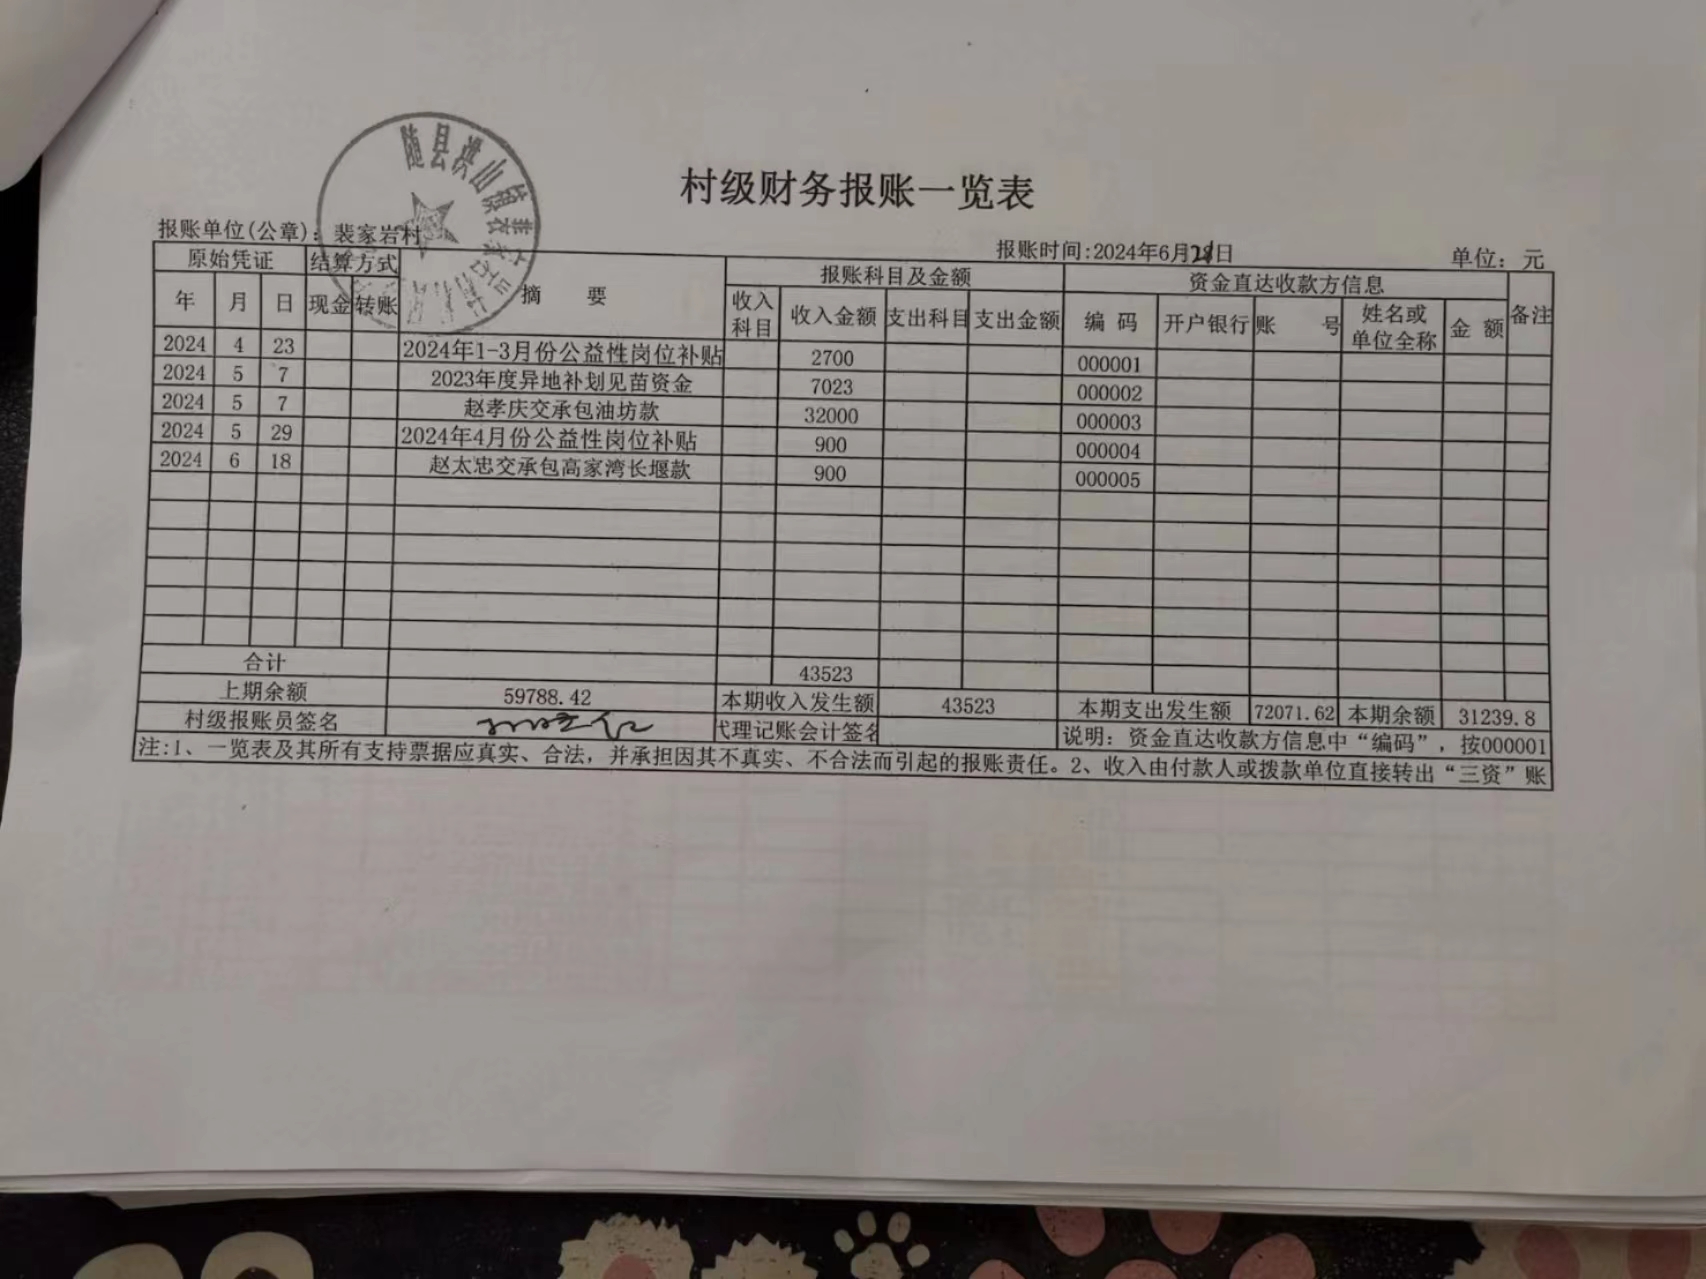 随县洪山镇裴家岩村
村级财务报账一览表
报账单位(公章)：裴家岩村 报账时间:2024年6月28日 单位：元
原始凭证 结算方式 摘 要 报账科目及金额 资金直达收款方信息 备注
年 月 日 现金 转账 收入科目 收入金额 支出科目 支出金额 编 码 开户银行 账 号 姓名或单位全称 金 额
2024 4 23 2024年1-3月份公益性岗位补贴 2700 000001
2024 5 7 2023年度异地补划见苗资金 7023 000002
2024 5 7 赵孝庆交承包油坊款 32000 000003
2024 5 29 2024年4月份公益性岗位补贴 900 000004
2024 6 18 赵太忠交承包高家湾长堰款 900 000005
合计 43523
上期余额 59788.42 本期收入发生额 43523 本期支出发生额 72071.62 本期余额 31239.8
村级报账员签名 代理记账会计签名 说明：资金直达收款方信息中“编码”，按000001
注:1、一览表及其所有支持票据应真实、合法，并承担因其不真实、不合法而引起的报账责任。2、收入由付款人或拨款单位直接转出“三资”账